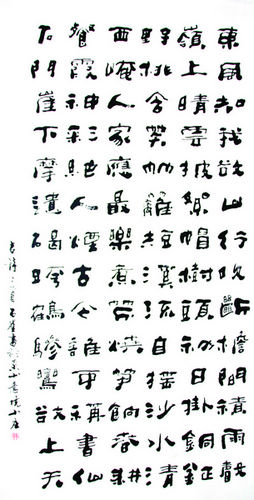 東風知我欲山行吹斷檐間積雨聲
嶺上晴雲披絮帽樹頭初日掛銅鉦
野桃含笑竹籬短溪流自搖沙水清
西崦人家應最樂煮芹燒筍餉春耕
餐霞神彩絕人煙古今誰可稱書仙
石門崖下摩遺碣跨鶴驂鸞欲上天